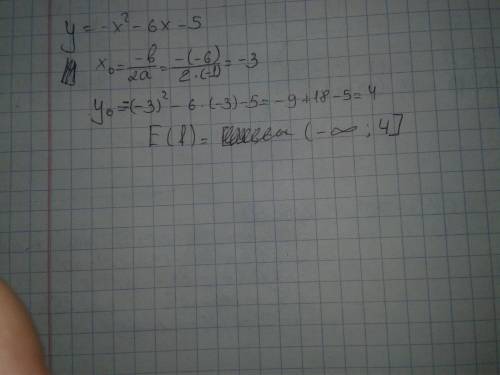 y = -x² - 6x - 5
x₀ = -b/2a = -(-6)/2·(-1) = -3
y₀ = -(-3)² - 6·(-3) - 5 = -9 + 18 - 5 = 4
E(f) = (-∞; 4]